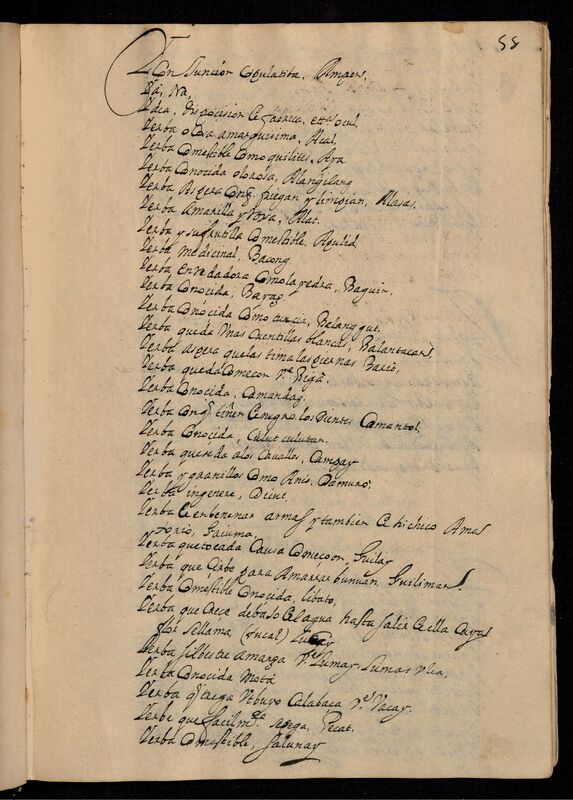 58
Y Con Juncion Copulatiba, Ampon,
Ya, Na,
Ydea, disposicion de fabrica, etta ocul,
Yerba olosa amarguisima, Acal,
Yerba Comestible como quilites, Ara
Yerba Conocida olorosa, Alangilang
Yerba Aspera Con q friegan y limpian, Alasas,
Yerba Amarilla y rosa, Alat.
Yerba y su frutilla Comestible, Apulid
Yerba medicinal, Bacong
Yerba Enredadora Como la yedra, Baguin.
Yerba Conocida, Barag
Yerba Conocida Como Balanggut,
Yerba que da Unas Cuentillas blancas, Balantacan
Yerba aspera que lastima las piernas Baric,
Yerba que da Comecon Ve Biga.
Yerba Conocida, Camandag.
Yerba Con q tiñen de negro los Dientes Camantol,
Yerba Conocida, Culut culutan.
Yerba que se da a los Cavallos, Cumpay
Yerba y granillos Como Anis. Damuro,
Yerba in genere, Diut,
Yerba de enbenenar armas y tambien de hichico Amas
torio, Gaiuma
Yerba que tocada Causa Começon, Guilay
Yerba que Cirbe para Amarrar buyuan, Guiliman
Yerba Comestible Conocida, libato,
Yerba que Crece debaxo del agua hasta salir de ella Cuya
flor se llama, (tucal)
Yerba silbestre amarga Ve Lumay Lumas
Yerba Conocida Mota
Yerba q trega Ubuyo Calabaca Ve Vacay.
Yerba que facilmte se pega, Pecat.
Yerba Comestible, Salunay